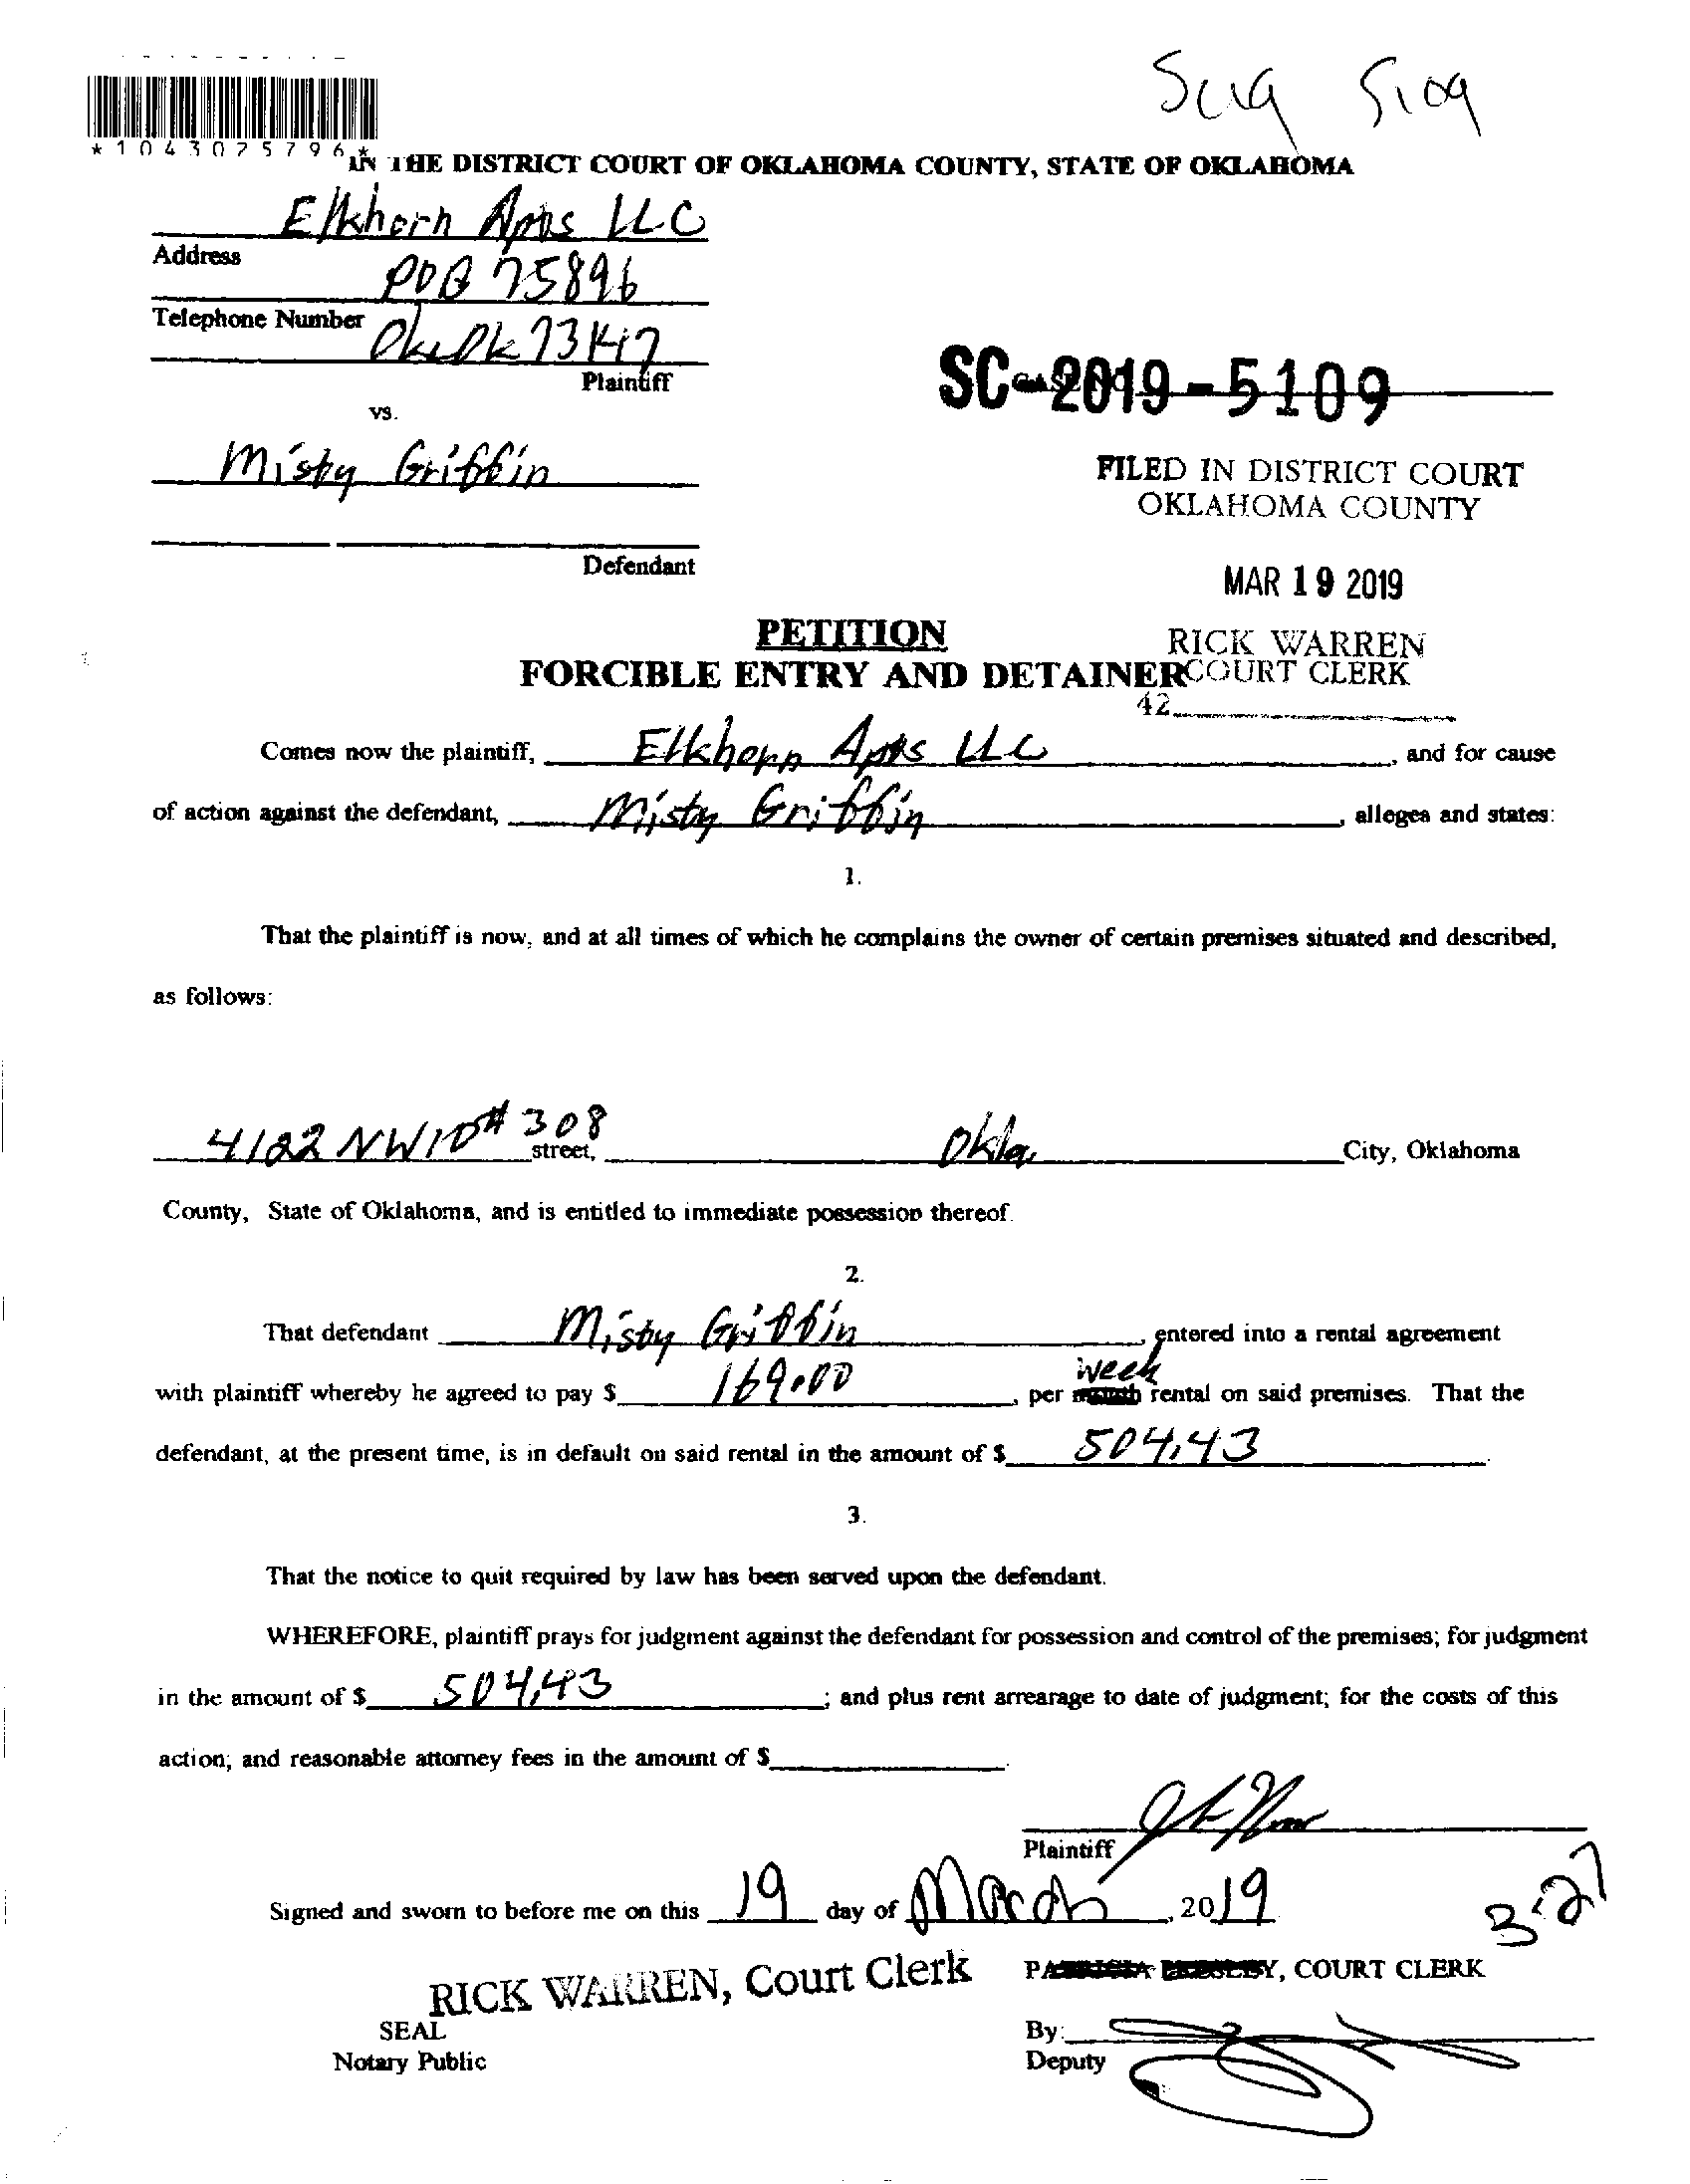 Sc19 5109
*1043075796*
IN THE DISTRICT COURT OF OKLAHOMA COUNTY, STATE OF OKLAHOMA
Elkhorn Apts LLC
Address
POB 75896
Telephone Number
Okc Ok 73147
Plaintiff
vs.
SC-2019-5109
Misty Griffin
FILED IN DISTRICT COURT
OKLAHOMA COUNTY
Defendant
MAR 19 2019
PETITION
RICK WARREN
FORCIBLE ENTRY AND DETAINER
COURT CLERK
42
Comes now the plaintiff, Elkhorn Apts LLC, and for cause
of action against the defendant, Misty Griffin, alleges and states:
1.
That the plaintiff is now, and at all times of which he complains the owner of certain premises situated and described,
as follows:
4122 NW10 #308 street, Okla. City, Oklahoma
County, State of Oklahoma, and is entitled to immediate possession thereof.
2.
That defendant Misty Griffin, entered into a rental agreement
week
with plaintiff whereby he agreed to pay $ 169.00, per month rental on said premises. That the
defendant, at the present time, is in default on said rental in the amount of $ 504.43.
3.
That the notice to quit required by law has been served upon the defendant.
WHEREFORE, plaintiff prays for judgment against the defendant for possession and control of the premises; for judgment
in the amount of $ 504.43; and plus rent arrearage to date of judgment; for the costs of this
action; and reasonable attorney fees in the amount of $.
Plaintiff
Signed and sworn to before me on this 19 day of March, 2019
3-27
RICK WARREN, Court Clerk
PATRICIA PRESLEY, COURT CLERK
SEAL
Notary Public
By:
Deputy